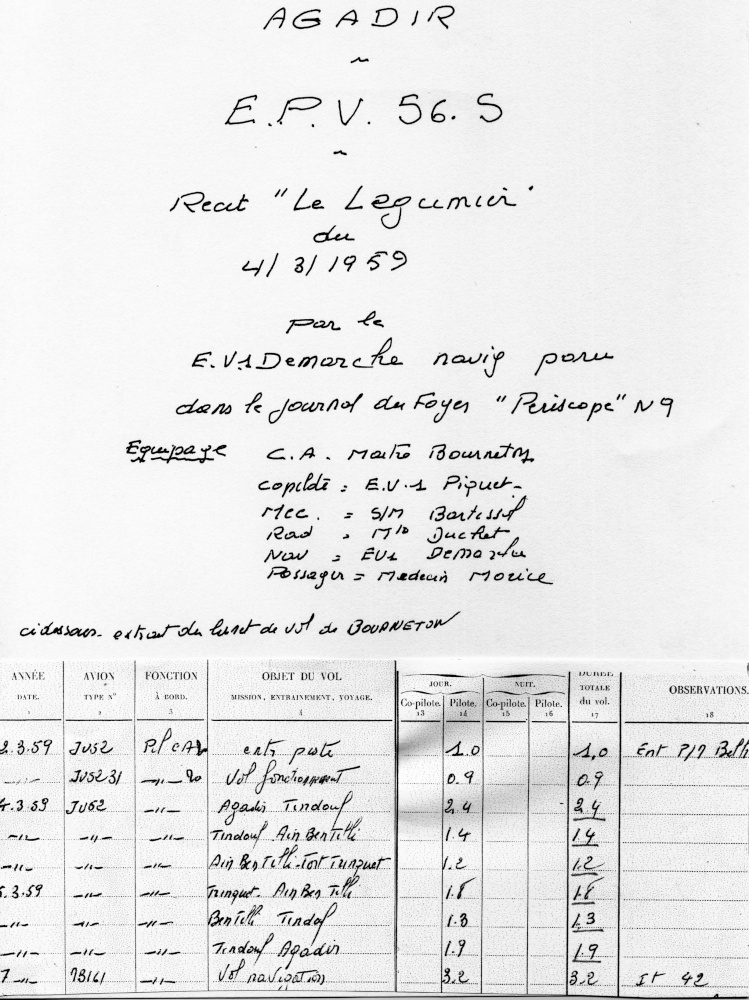 AGADIR
~
E.P.V. 56. S
~
Recit "Le Legumier"
du
4/3/1959
par le
E.V.1 Demarche navig paru
dans le journal du Foyer "Periscope" N 9
Equipage C.A. Maitre Bourneton
copilote = E.V.1 Piquet-
Mec. = S/M
Rad = Duchet
Nav = EV1 Demarche
Passager = Medecin Morice
cidessous- extrait du livret de vol de BOURNETON
ANNÉE AVION FONCTION OBJET DU VOL JOUR. NUIT. DURÉE TOTALE du vol. OBSERVATIONS.
DATE. TYPE N° À BORD. MISSION, ENTRAINEMENT, VOYAGE. Co-pilote. Pilote. Co-pilote. Pilote.
1 2 3 4 13 14 15 16 17 18
2.3.59 JU52 entr piste 1.0 1,0 Ent
JU52 31 -"- Vol fonctionnement 0.9 0.9
4.3.59 JU52 -"- Agadir Tindouf 2,4 2,4
-"- -"- -"- Tindouf Ain Ben Tilli 1.4 1.4
-"- -"- -"- Ain Ben Tilli-Fort Trinquet 1.2 1.2
5.3.59 -"- -"- Trinquet. Ain Ben Tilli 1.8 1.8
-"- -"- -"- Ben Tilli Tindouf 1.3 1.3
-"- -"- -"- Tindouf Agadir 1.9 1.9
7 -"- -"- Vol navigation 3.2 3.2 It 42